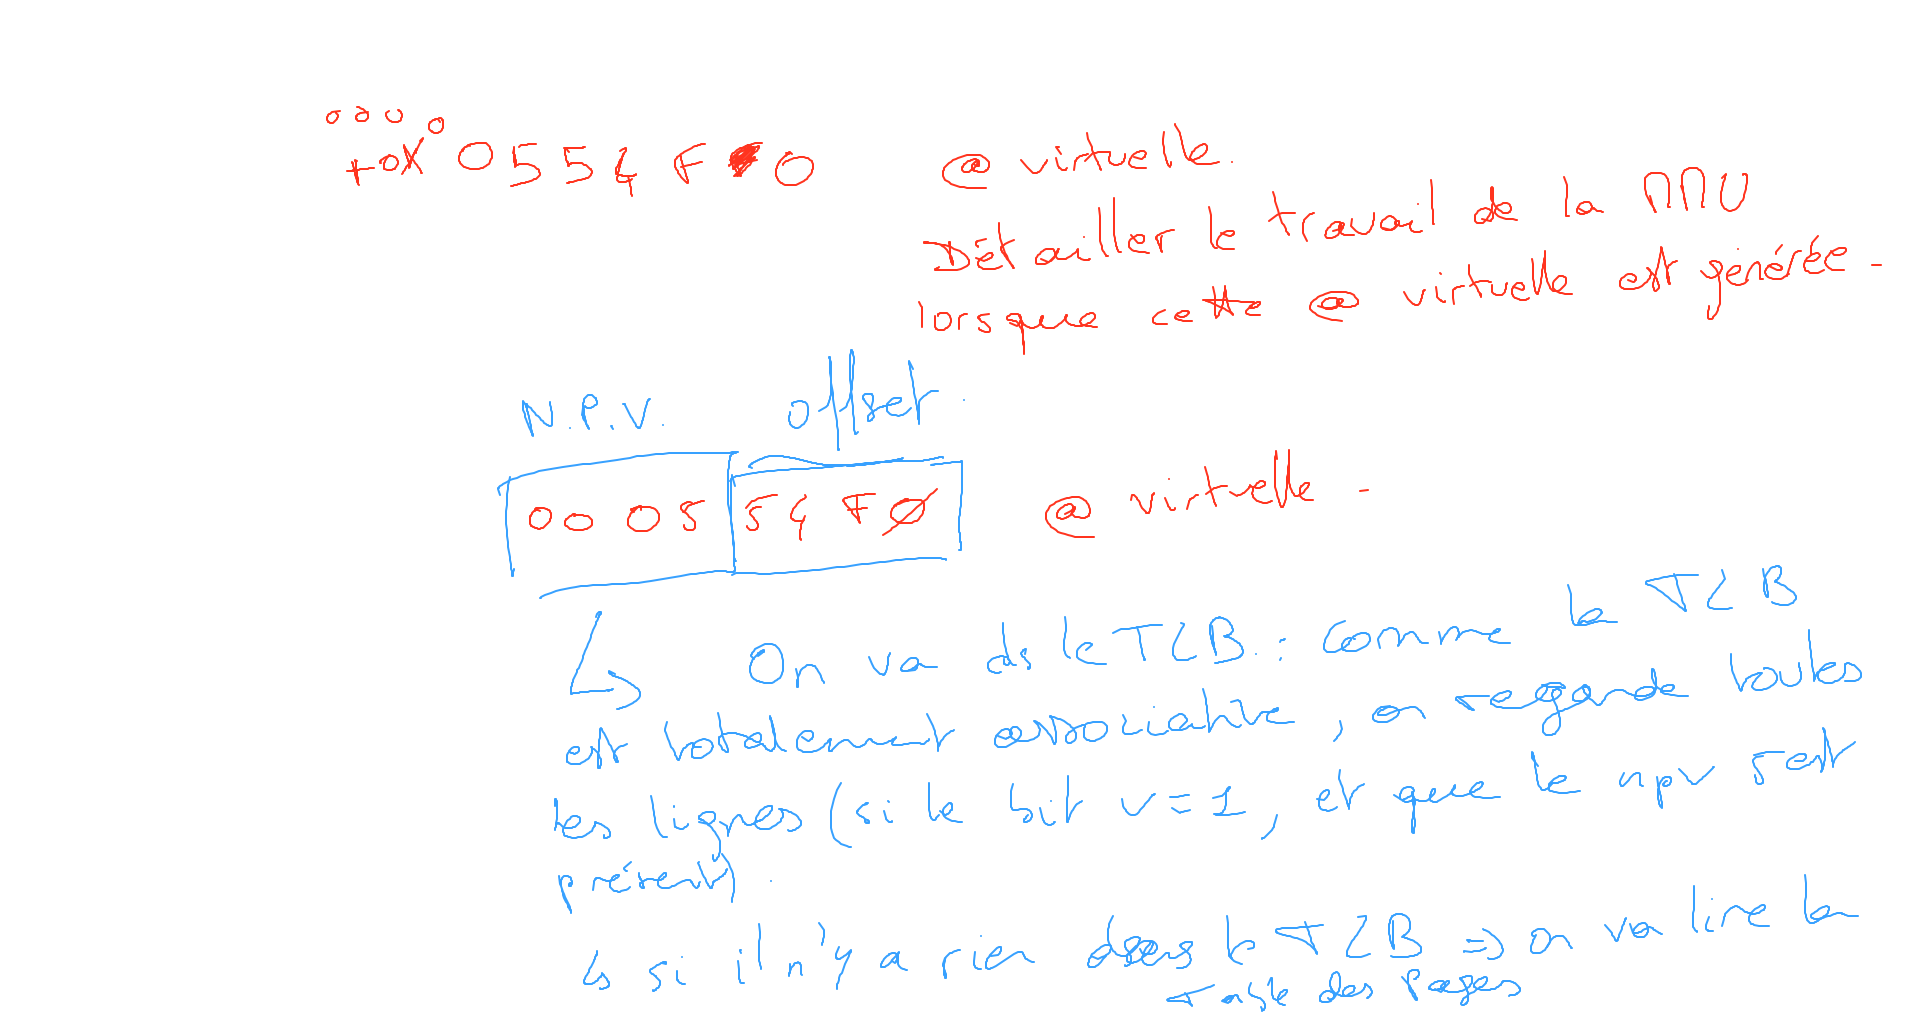 0000
+0X 0554F 0 @ virtuelle.
Détailler le travail de la MMU
lorsque cette @ virtuelle est générée.
N.P.V. offset.
00 05 54F0 @ virtuelle.
On va ds le TLB : comme le TLB
est totalement associative, on regarde toutes
les lignes (si le bit v=1, et que le npv 5 est
présent).
↳ si il n'y a rien dans le TLB => on va lire la
Table des Pages